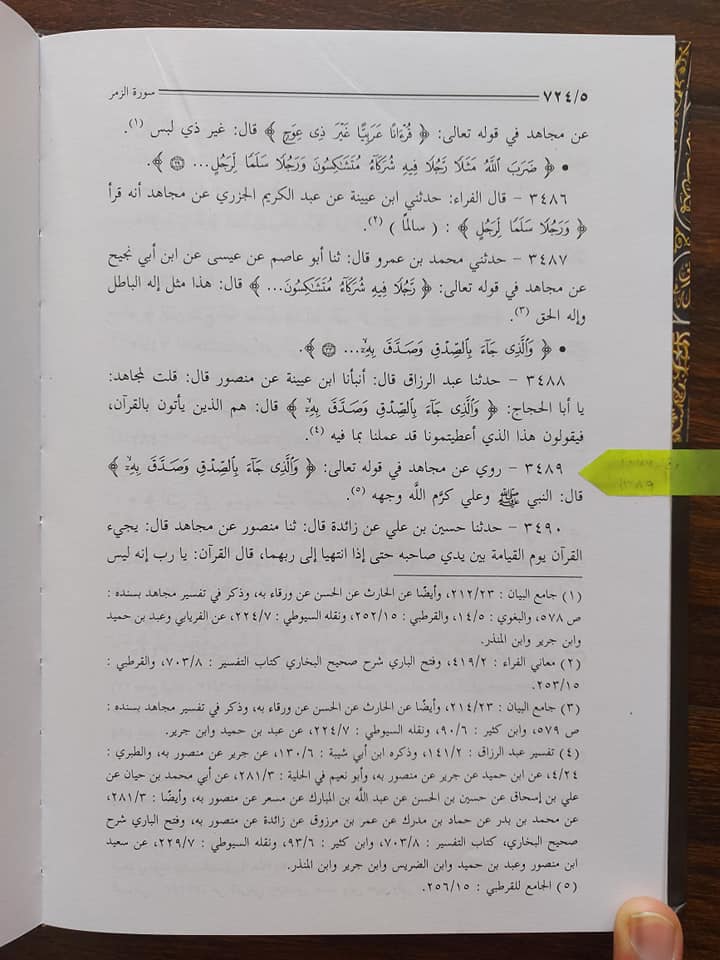 ٧٢٤/٥ سورة الزمر
عن مجاهد في قوله تعالى: ﴿ قُرْءَانًا عَرَبِيًّا غَيْرَ ذِى عِوَجٍ ﴾ قال: غير ذي لبس (١).
• ﴿ ضَرَبَ ٱللَّهُ مَثَلًا رَّجُلًا فِيهِ شُرَكَآءُ مُتَشَٰكِسُونَ وَرَجُلًا سَلَمًا لِّرَجُلٍ... ﴿٢٩﴾ ﴾.
٣٤٨٦ - قال الفراء: حدثني ابن عيينة عن عبد الكريم الجزري عن مجاهد أنه قرأ
﴿ وَرَجُلًا سَلَمًا لِّرَجُلٍ ﴾ : ( سالمًا ) (٢).
٣٤٨٧ - حدثني محمد بن عمرو قال: ثنا أبو عاصم عن عيسى عن ابن أبي نجيح
عن مجاهد في قوله تعالى: ﴿ رَّجُلًا فِيهِ شُرَكَآءُ مُتَشَٰكِسُونَ... ﴾ قال: هذا مثل إله الباطل
وإله الحق (٣).
• ﴿ وَٱلَّذِى جَآءَ بِٱلصِّدْقِ وَصَدَّقَ بِهِۦٓ... ﴿٣٣﴾ ﴾.
٣٤٨٨ - حدثنا عبد الرزاق قال: أنبأنا ابن عيينة عن منصور قال: قلت لمجاهد:
يا أبا الحجاج: ﴿ وَٱلَّذِى جَآءَ بِٱلصِّدْقِ وَصَدَّقَ بِهِۦٓ ﴾ قال: هم الذين يأتون بالقرآن،
فيقولون هذا الذي أعطيتمونا قد عملنا بما فيه (٤).
٣٤٨٩ - روي عن مجاهد في قوله تعالى: ﴿ وَٱلَّذِى جَآءَ بِٱلصِّدْقِ وَصَدَّقَ بِهِۦٓ ﴾
قال: النبي ﷺ وعلي كرَّم اللَّه وجهه (٥).
٣٤٩٠ - حدثنا حسين بن علي عن زائدة قال: ثنا منصور عن مجاهد قال: يجيء
القرآن يوم القيامة بين يدي صاحبه حتى إذا انتهيا إلى ربهما، قال القرآن: يا رب إنه ليس
(١) جامع البيان : ٢١٢/٢٣، وأيضًا عن الحارث عن الحسن عن ورقاء به، وذكر في تفسير مجاهد بسنده :
ص ٥٧٨، والبغوي : ١٤/٥، والقرطبي : ٢٥٢/١٥، ونقله السيوطي : ٢٢٤/٧، عن الفريابي وعبد بن حميد
وابن جرير وابن المنذر.
(٢) معاني الفراء : ٤١٩/٢، وفتح الباري شرح صحيح البخاري كتاب التفسير : ٧٠٣/٨، والقرطبي :
٢٥٣/١٥.
(٣) جامع البيان : ٢١٤/٢٣، وأيضًا عن الحارث عن الحسن عن ورقاء به، وذكر في تفسير مجاهد بسنده :
ص ٥٧٩، وابن كثير : ٩٠/٦، ونقله السيوطي : ٢٢٤/٧، عن عبد بن حميد وابن جرير.
(٤) تفسير عبد الرزاق : ١٤١/٢، وذكره ابن أبي شيبة : ١٣٠/٦، عن جرير عن منصور به، والطبري :
٤/٢٤، عن ابن حميد عن جرير عن منصور به، وأبو نعيم في الحلية : ٢٨١/٣، عن أبي محمد بن حيان عن
علي بن إسحاق عن حسين بن الحسن عن عبد اللَّه بن المبارك عن مسعر عن منصور به، وأيضًا : ٢٨١/٣،
عن محمد بن بدر عن حماد بن مدرك عن عمر بن مرزوق عن زائدة عن منصور به، وفتح الباري شرح
صحيح البخاري، كتاب التفسير : ٧٠٣/٨، وابن كثير : ٩٣/٦، ونقله السيوطي : ٢٢٩/٧، عن سعيد
ابن منصور وعبد بن حميد وابن الضريس وابن جرير وابن المنذر.
(٥) الجامع للقرطبي : ٢٥٦/١٥.